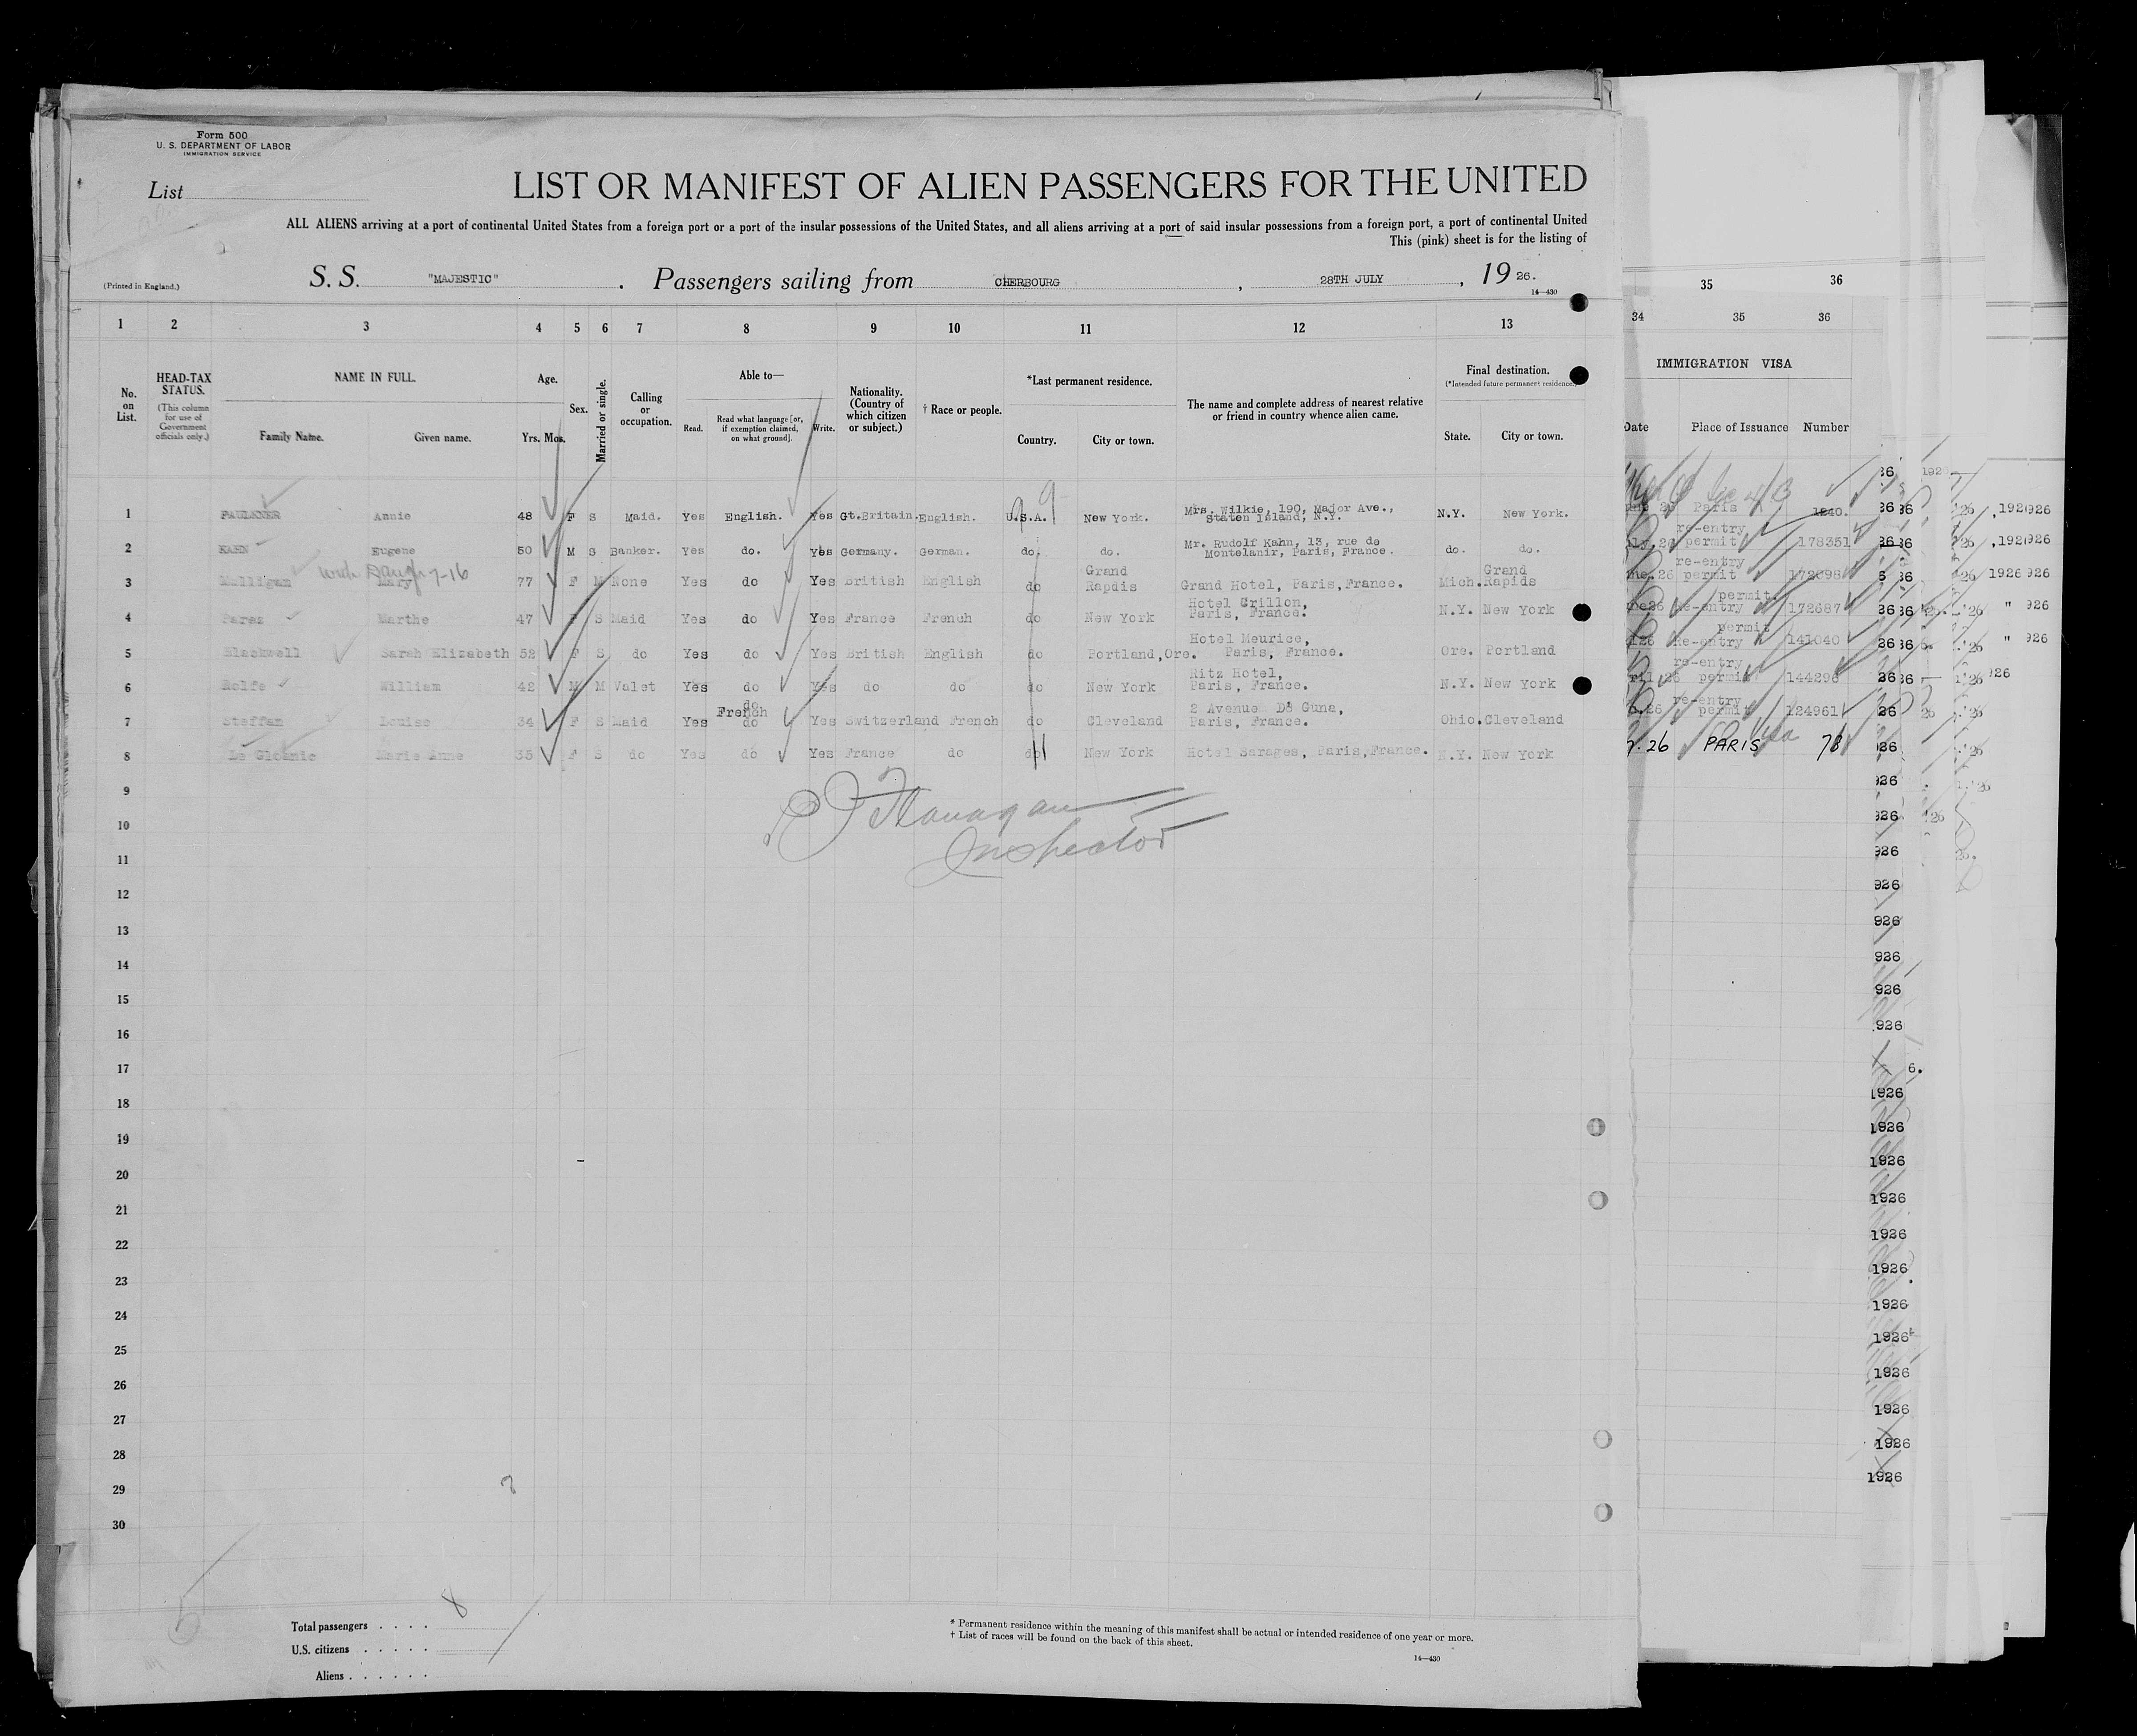 Form 500
U. S. DEPARTMENT OF LABOR
IMMIGRATION SERVICE
List
LIST OR MANIFEST OF ALIEN PASSENGERS FOR THE UNITED
ALL ALIENS arriving at a port of continental United States from a foreign port or a port of the insular possessions of the United States, and all aliens arriving at a port of said insular possessions from a foreign port, a port of continental United
This (pink) sheet is for the listing of
(Printed in England.)
S. S. "MAJESTIC" . Passengers sailing from CHERBOURG , 28TH JULY , 19 26.
14—430
1 2 3 4 5 6 7 8 9 10 11 12 13
No. on List.
HEAD-TAX STATUS.
(This column for use of Government officials only.)
NAME IN FULL.
Family Name. Given name.
Age.
Yrs. Mos.
Sex.
Married or single.
Calling or occupation.
Able to—
Read. Read what language [or, if exemption claimed, on what ground]. Write.
Nationality. (Country of which citizen or subject.)
† Race or people.
*Last permanent residence.
Country. City or town.
The name and complete address of nearest relative or friend in country whence alien came.
Final destination.
(*Intended future permanent residence.)
State. City or town.
35 36
34 35 36
IMMIGRATION VISA
Date Place of Issuance Number
1 FAULKNER Annie 48 F S Maid. Yes English. Yes Gt.Britain. English. U.S.A. New York. Mrs. Wilkie, 190, Major Ave., Staten Island, N.Y. N.Y. New York. Paris 1240.
2 KAHN Eugene 50 M S Banker. Yes do. Yes Germany. German. do. do. Mr. Rudolf Kahn, 13, rue de Montelanir, Paris, France. do. do. re-entry permit 178351
3 Mulligan Mary 77 F M None Yes do Yes British English do Grand Rapdis Grand Hotel, Paris,France. Mich. Grand Rapids re-entry permit 172698
4 Paraz Marthe 47 F S Maid Yes do Yes France French do New York Hotel Crillon, Paris, France. N.Y. New York Re-entry permit 172687
5 Blackwell Sarah Elizabeth 52 F S do Yes do Yes British English do Portland,Ore. Hotel Meurice, Paris, France. Ore. Portland Re-entry permit 141040
6 Rolfe William 42 M M Valet Yes do Yes do do do New York Ritz Hotel, Paris, France. N.Y. New York re-entry permit 144296
7 Steffan Louise 34 F S Maid Yes do French do Yes Switzerland French do Cleveland 2 Avenue De Guna, Paris, France. Ohio. Cleveland re-entry permit 124961
8 Le Gloanic Marie Anne 35 F S do Yes do Yes France do do New York Hotel Sarages, Paris,France. N.Y. New York 26 PARIS Visa 78
9
Flanagan
10
Inspector
11
12
13
14
15
16
17
18
19
20
21
22
23
24
25
26
27
28
29
30
Total passengers . . . . 8
U.S. citizens . . . . .
Aliens . . . . . .
* Permanent residence within the meaning of this manifest shall be actual or intended residence of one year or more.
† List of races will be found on the back of this sheet.
14—430